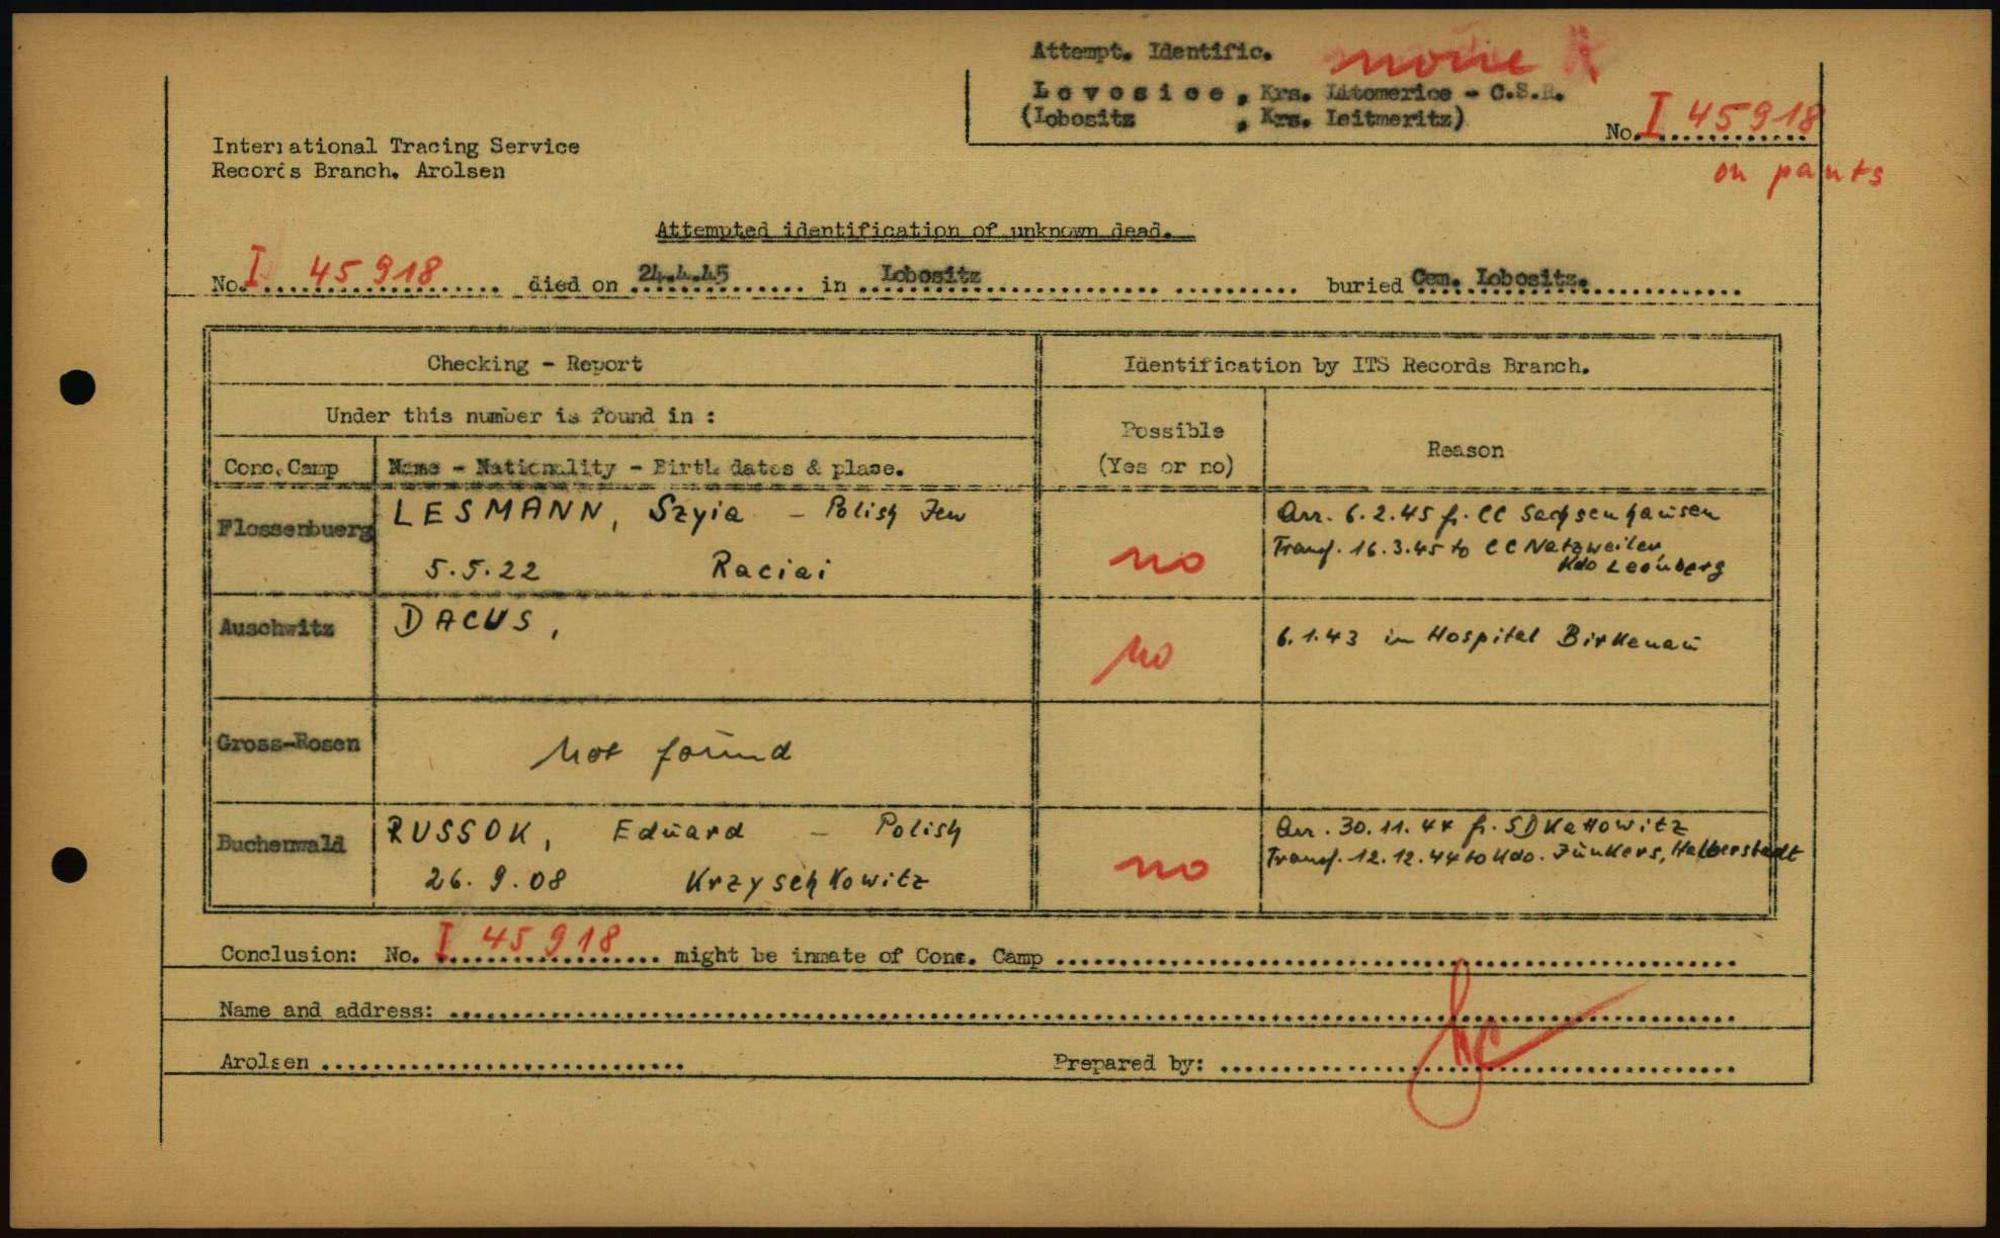 Attempt. Identific.
Lovosice, Krs. Litomerice - C.S.R.
(Lobositz , Krs. Leitmeritz)
No. I 45918
on pants
International Tracing Service
Records Branch. Arolsen
Attempted identification of unknown dead.
No. I 45918 died on 24.4.45 in Lobositz buried Cem. Lobositz.
Checking - Report
Identification by ITS Records Branch.
Under this number is found in :
Possible
(Yes or no)
Reason
Conc. Camp
Name - Nationality - Birth dates & place.
Flossenbuerg
LESMANN, Szyia - Polish Jew
5.5.22 Raciai
no
Arr. 6.2.45 fr. CC Sachsenhausen
Transf. 16.3.45 to CC Natzweiler
Kdo Leonberg
Auschwitz
DACUS,
no
6.1.43 in Hospital Birkenau
Gross-Rosen
Not found
Buchenwald
RUSSOK, Eduard - Polish
26.9.08 Krzyschkowitz
no
Arr. 30.11.44 fr. SD Kattowitz
Transf. 12.12.44 to Kdo. Junkers, Halberstadt
Conclusion: No. I 45918 might be inmate of Conc. Camp
Name and address:
Arolsen
Prepared by: